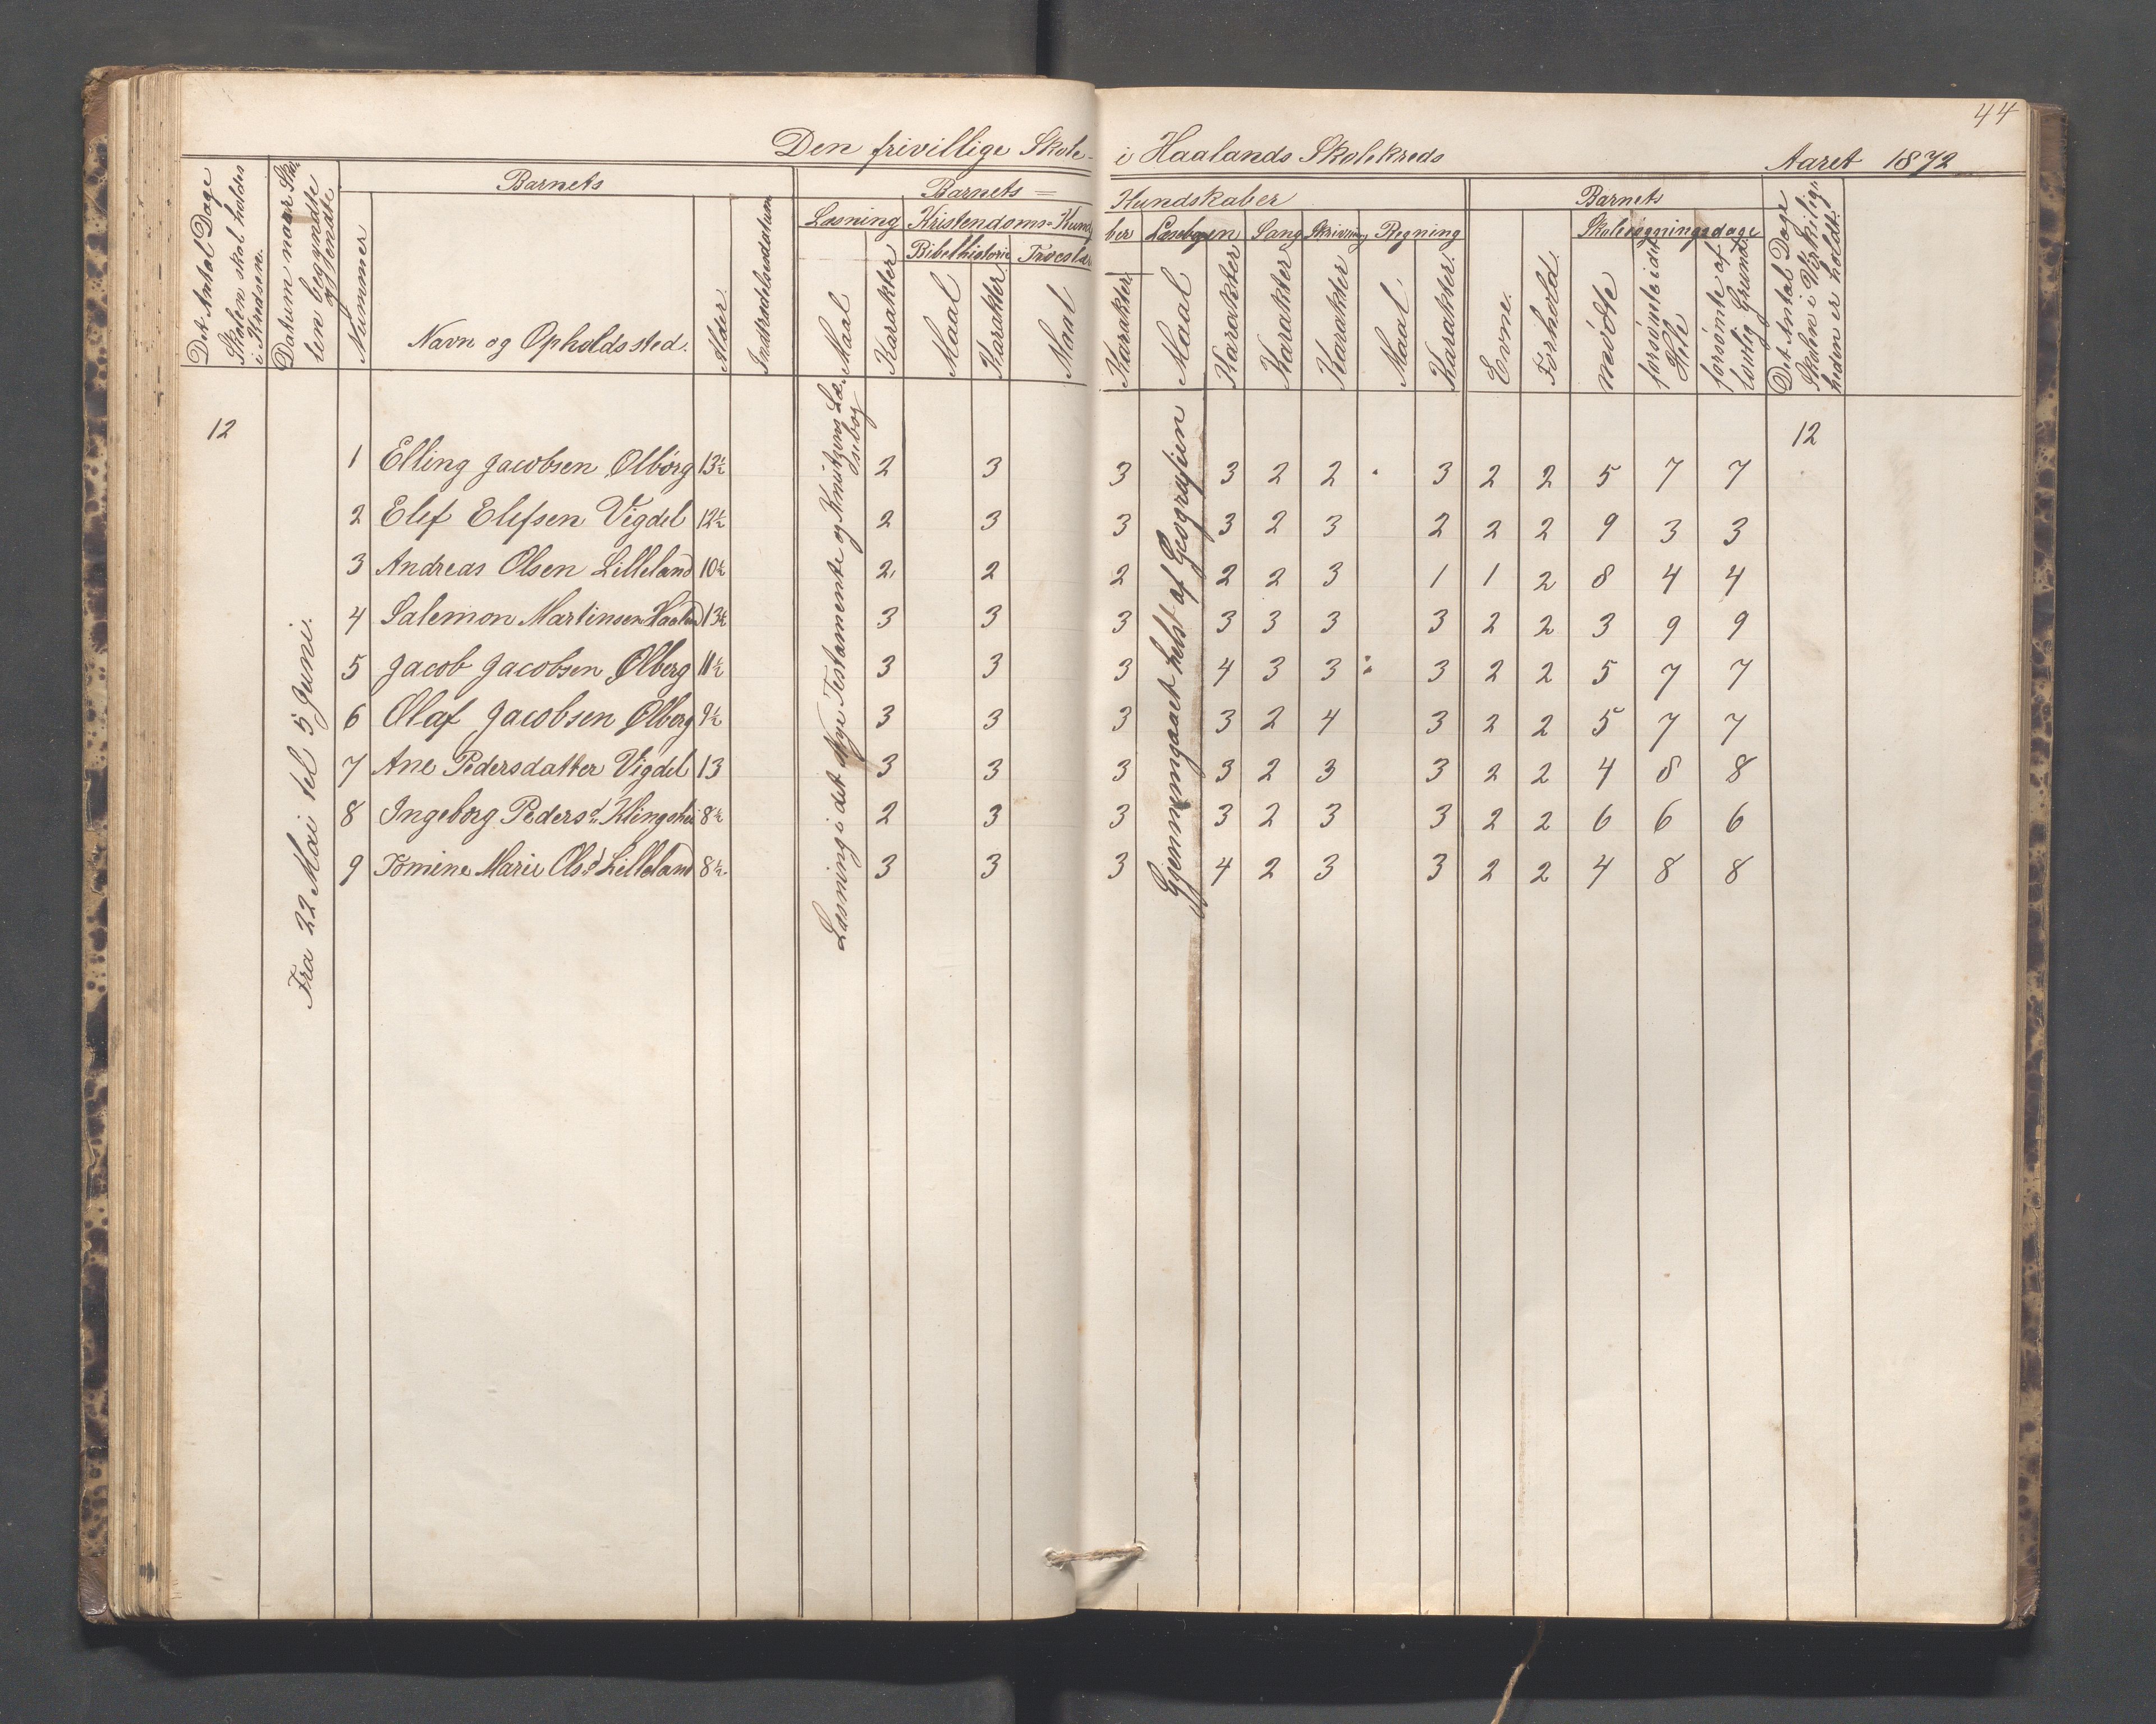 44
Den frivillige Skole- i Haalands Skolekreds Aaret 1872
Det Antal Dage Skolen skal holdes i Kredsen.
Datum naar Skolen begyndte og endte
Barnets
Nummer
Navn og Opholdssted.
Alder
Indtrædelsesdatum
Barnets = Kundskaber
Læsning
Maal
Karakter
Kristendoms-Kundskaber
Bibelhistorie
Maal
Karakter
Troeslære
Maal
Karakter
Læsebogen
Maal
Karakter
Sang
Karakter
Skrivning
Karakter
Regning
Maal
Karakter.
Barnets
Evne.
Forhold.
Skolesøgningsdage
mødte
forsømte i det Hele
forsømte af lovlig Grund.
Det Antal Dage Skolen i Virkeligheden er holdt.
12
Fra 22 Mai til 5 Juni.
Læsning i det Nye Testamente og Knutzens Læsebog
Gjennemgaaet helst af Geografien
12
1 Elling Jacobsen Ølberg 13½ 2 3 3 3 2 2 3 2 2 5 7 7
2 Elef Elefsen Vigdel 12½ 2 3 3 3 2 3 2 2 2 9 3 3
3 Andreas Olsen Lilleland 10½ 2 2 2 2 2 3 1 1 2 8 4 4
4 Salemon Martinsen Haaland 13½ 3 3 3 3 3 3 3 2 2 3 9 9
5 Jacob Jacobsen Ølberg 11½ 3 3 3 4 3 3 3 2 2 5 7 7
6 Olaf Jacobsen Ølberg 9½ 3 3 3 3 2 4 3 2 2 5 7 7
7 Ane Pedersdatter Vigdel 13 3 3 3 3 2 3 3 2 2 4 8 8
8 Ingeborg Pedersd. 8½ 2 3 3 3 2 3 3 2 2 6 6 6
9 Tomine Marie Olsd. Lilleland 8½ 3 3 3 4 2 3 3 2 2 4 8 8